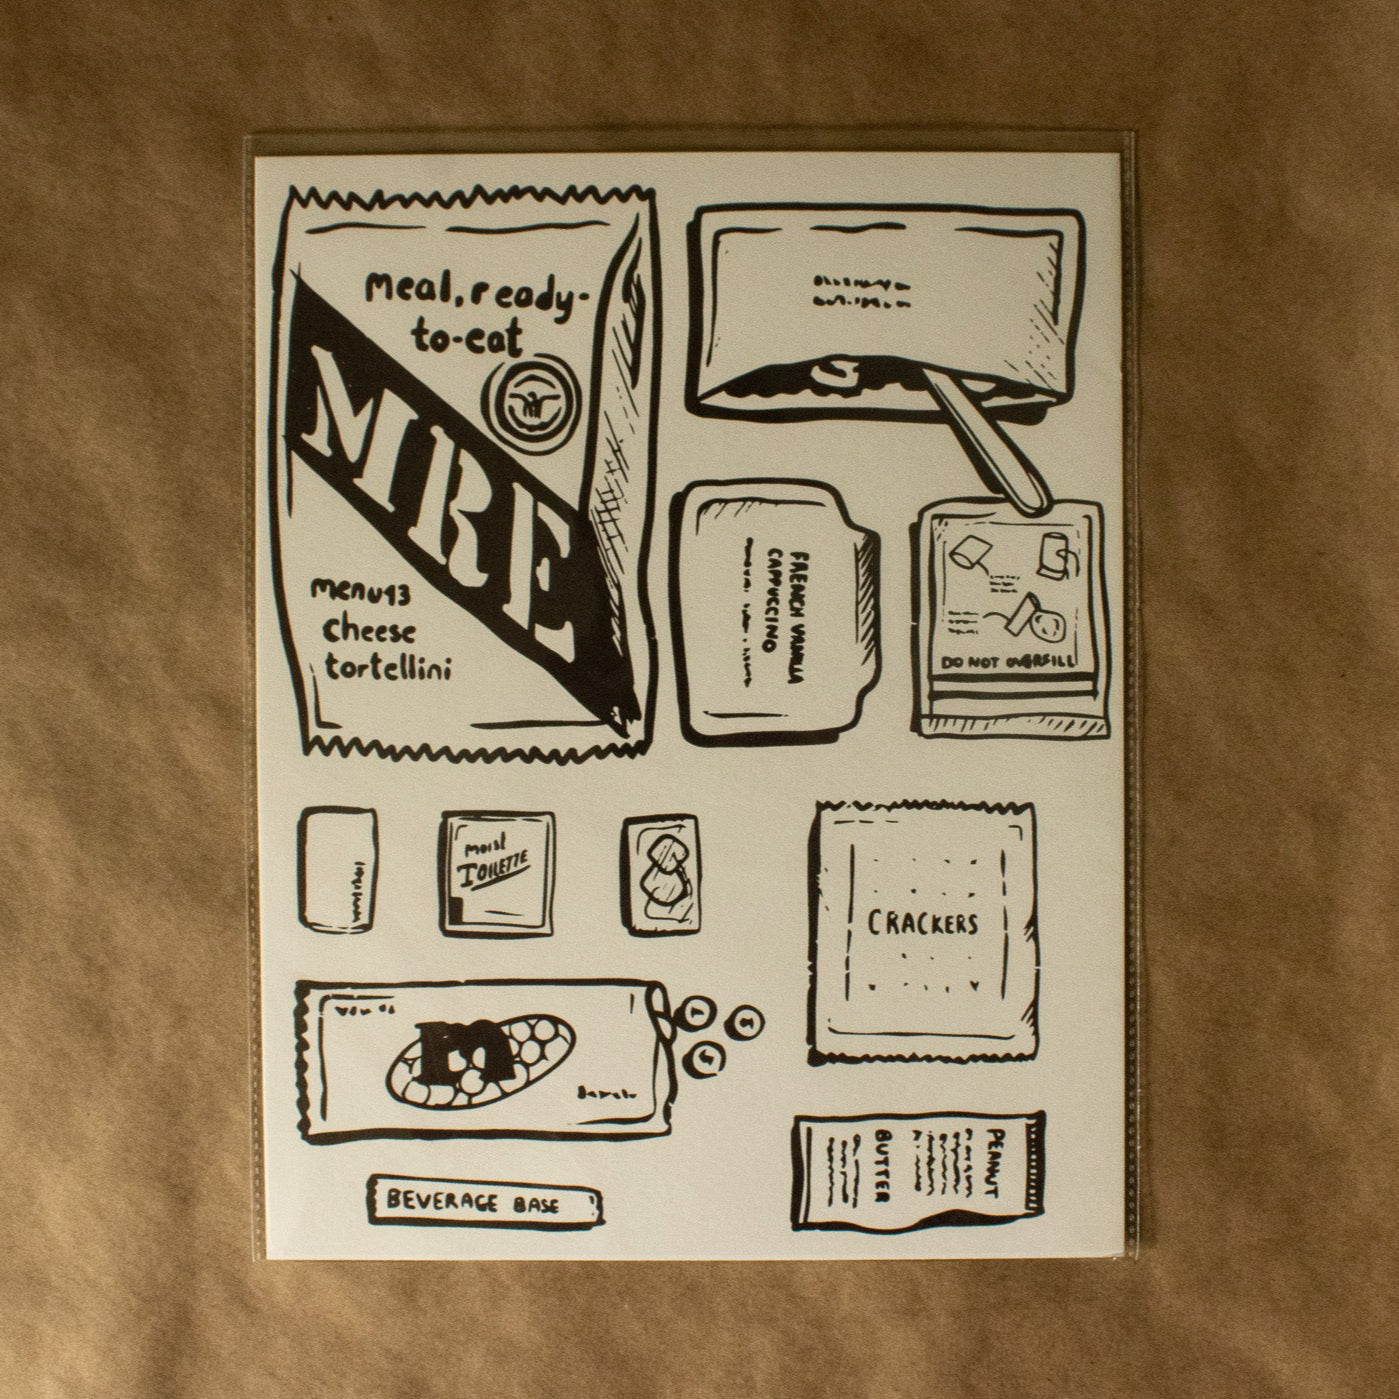 meal, ready-
to-eat
MRE
menu 13
cheese
tortellini
FRENCH VANILLA
CAPPUCCINO
DO NOT OVERFILL
moist
TOILETTE
CRACKERS
m
BEVERAGE BASE
PEANUT
BUTTER